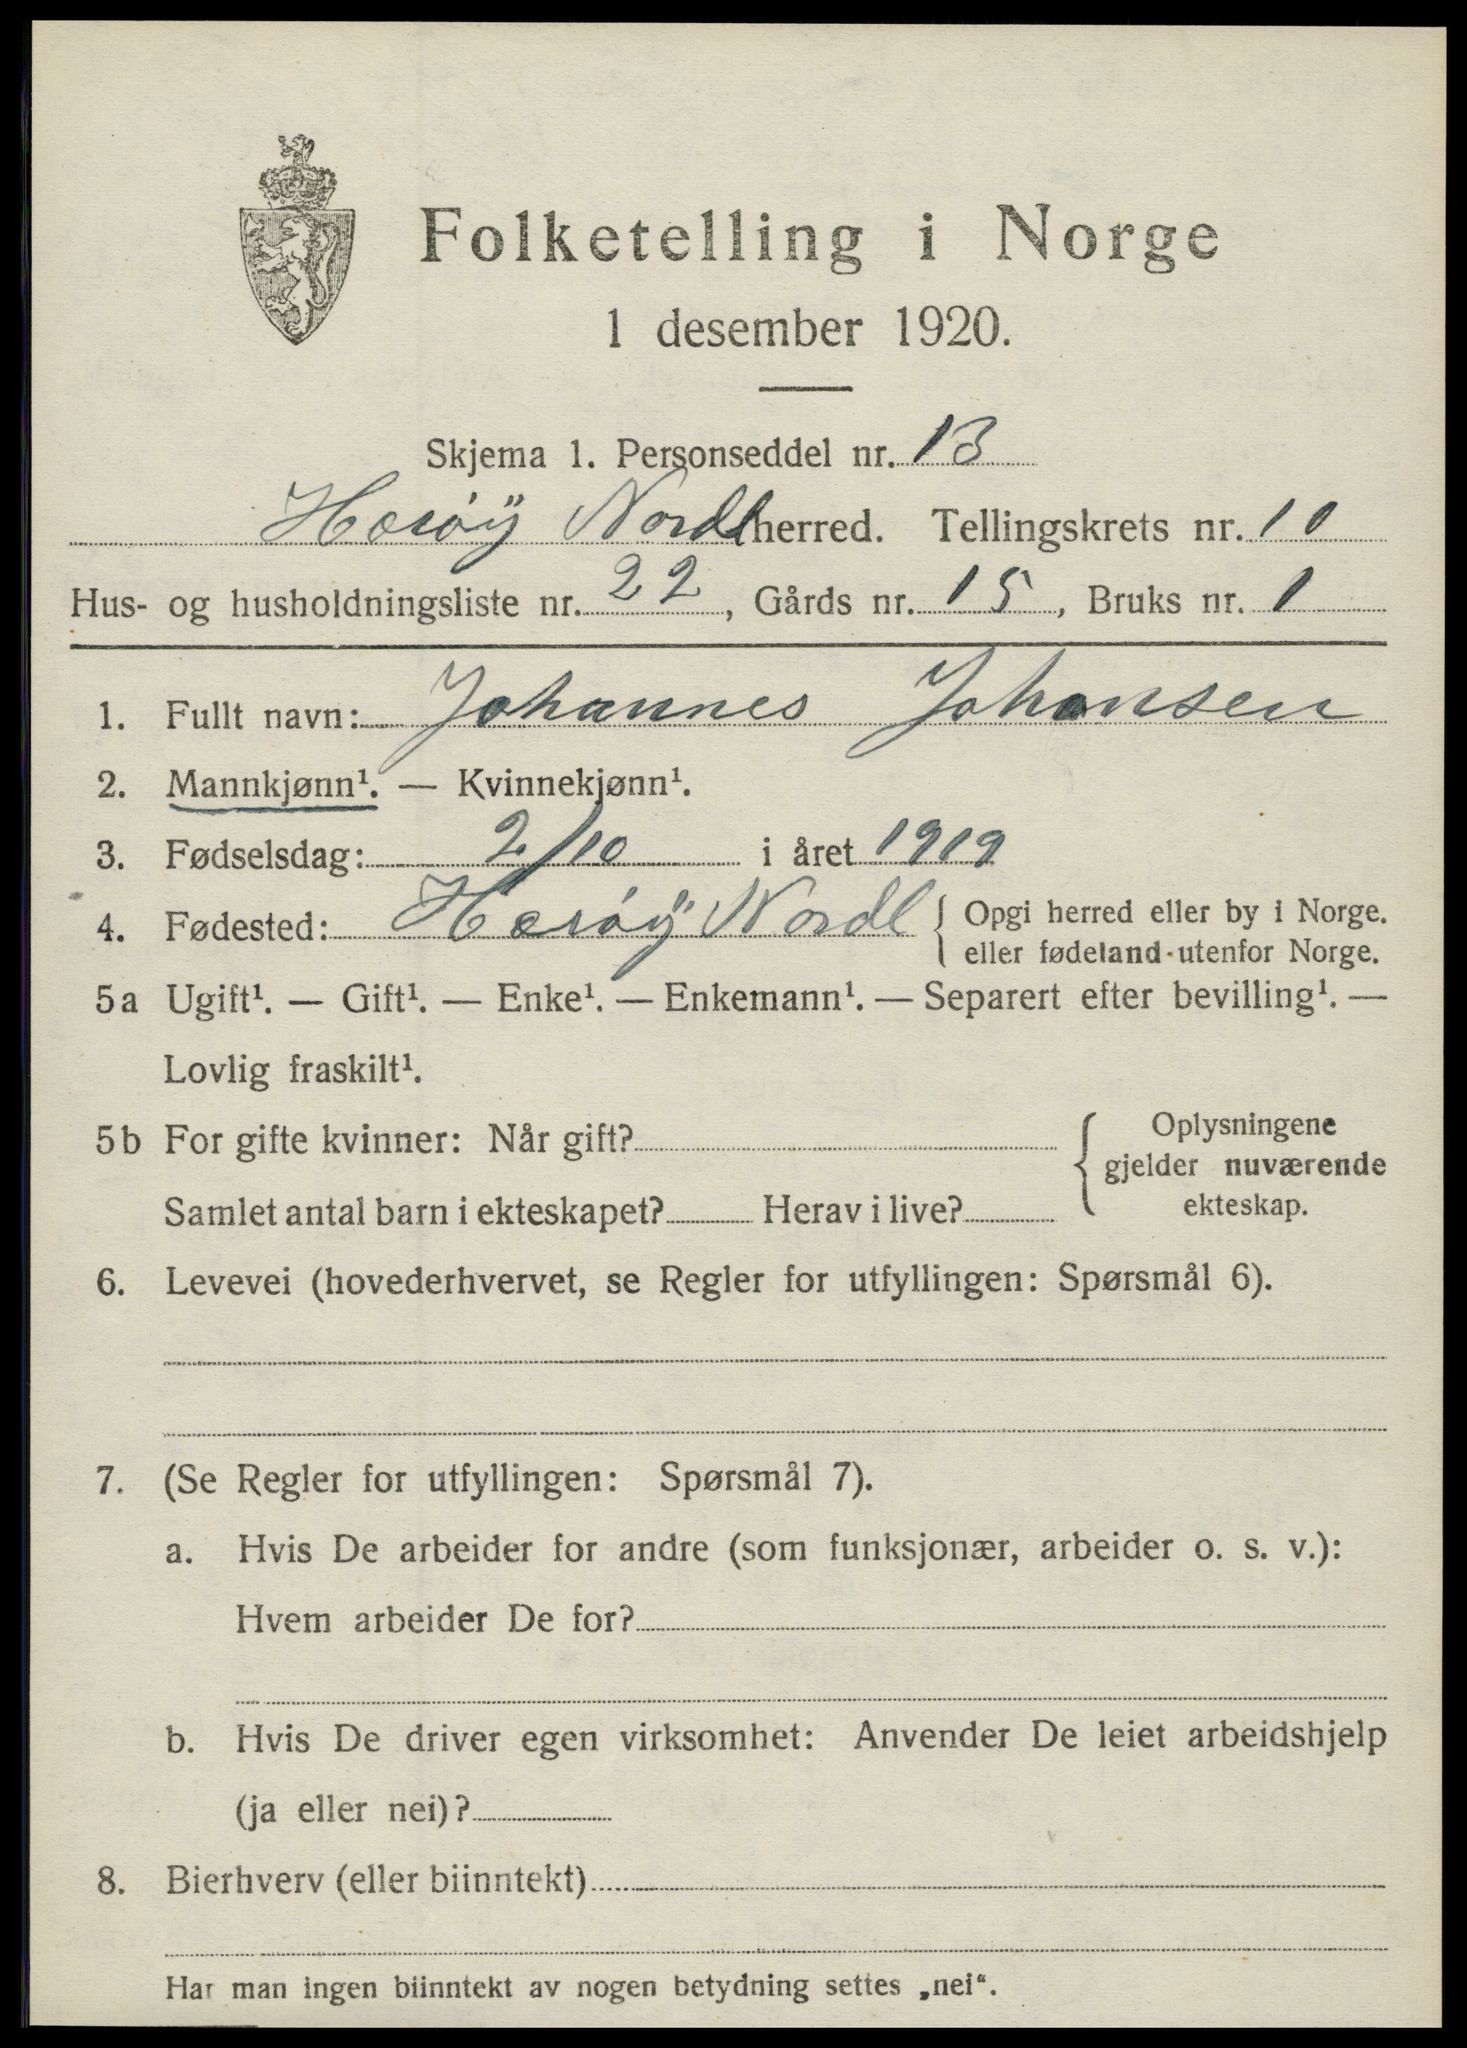 Folketelling i Norge
1 desember 1920.
Skjema 1. Personseddel nr. 13
Herøÿ Nordl herred. Tellingskrets nr. 10
Hus- og husholdningsliste nr. 22, Gårds nr. 15, Bruks nr. 1
1. Fullt navn: Johannes Johansen
2. Mannkjønn¹. — Kvinnekjønn¹.
3. Fødselsdag: 2/10 i året 1919
4. Fødested: Herøÿ Nordl { Opgi herred eller by i Norge.
eller fødeland utenfor Norge.
5a Ugift¹. — Gift¹. — Enke¹. — Enkemann¹. — Separert efter bevilling¹. —
Lovlig fraskilt¹.
5b For gifte kvinner: Når gift? { Oplysningene
gjelder nuværende
ekteskap.
Samlet antal barn i ekteskapet? Herav i live?
6. Levevei (hovederhvervet, se Regler for utfyllingen: Spørsmål 6).
7. (Se Regler for utfyllingen: Spørsmål 7).
a. Hvis De arbeider for andre (som funksjonær, arbeider o. s. v.):
Hvem arbeider De for?
b. Hvis De driver egen virksomhet: Anvender De leiet arbeidshjelp
(ja eller nei)?
8. Bierhverv (eller biinntekt)
Har man ingen biinntekt av nogen betydning settes „nei“.